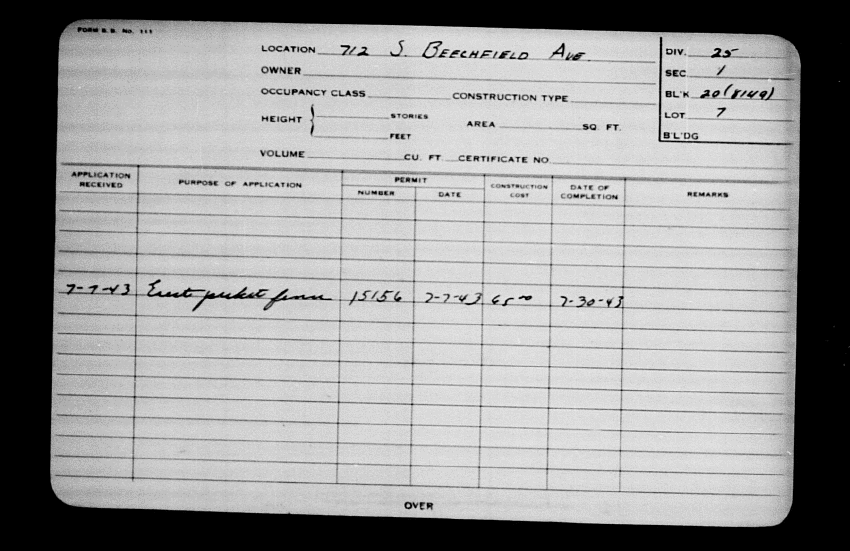 FORM B. B. No. 111
LOCATION 712 S. BEECHFIELD AVE.
DIV. 25
OWNER
SEC. 1
OCCUPANCY CLASS CONSTRUCTION TYPE
BL'K 20 (8149)
HEIGHT { STORIES
FEET
AREA SQ. FT.
LOT 7
B'L'DG
VOLUME CU. FT. CERTIFICATE NO.
APPLICATION RECEIVED PURPOSE OF APPLICATION PERMIT NUMBER DATE CONSTRUCTION COST DATE OF COMPLETION REMARKS
7-7-43 Erect picket fence 15156 7-7-43 65 00 7-30-43
OVER